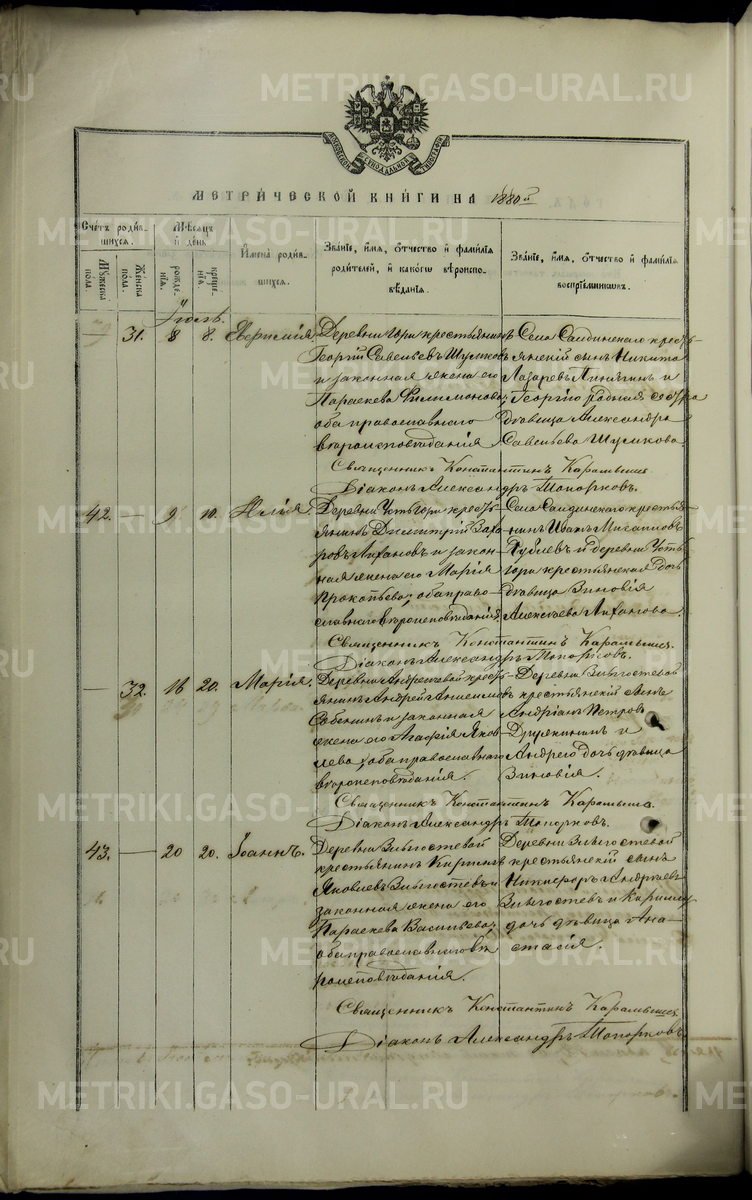 МЕТРИ́ЧЕСКОЙ КНИ́ГИ НА 1880й
Счетъ роди́вшихся.
Му́жеска пола.
Же́нска пола.
Мѣсяцъ и день
рожде́нїя.
креще́нїя.
Имена̀ роди́вшихся.
Зва́нїе, и́мя, о́тчество и фами́лїя роди́телей, и како́гѡ вѣроисповѣ́данїя.
Зва́нїе, и́мя, о́тчество и фами́лїя воспрїе́мникѡвъ.
Іюль.
— 31. 8 8.
Деревни Гори крестьянинъ
Георгій Савельевъ Шумковъ
и законная жена его
Параскева Филимонова,
оба православнаго
вѣроисповѣданія
Села Салдинскаго кресть-
янскій сынъ Никита
Лазаревъ и
Георгію родная сестра
дѣвица Александра
Савельева Шумкова.
Священникъ Константинъ Карамышевъ
Діаконъ Александръ Топорковъ.
42. — 9 10. Илія
Деревни Усть Гори кресть-
янинъ Димитрій Заха-
ровъ Лиханов и закон-
ная жена его Марія
Прокопьева, оба право-
славнаго вѣроисповѣданія
Села Салдинскаго кресть-
янинъ Иванъ
и деревни Усть
Гори крестьянская дочь
дѣвица Зиновія
Алексѣева Лиханова.
Священникъ Константинъ Карамышевъ
Діаконъ Александръ Топорковъ.
— 32. 16 20. Марія.
Деревни кресть-
янинъ Андрей
и законная
жена его Агафія Яков-
лева, оба православнаго
вѣроисповѣданія.
Деревни
крестьянскій сынъ
Андріанъ Петровъ
и
Андрея дочь дѣвица
Зиновія.
Священникъ Константинъ Карамышевъ
Діаконъ Александръ Топорковъ.
43. — 20 20. Іоаннъ.
Деревни
крестьянинъ
Яковлевъ и
законная жена его
Параскева Васильева,
оба православнаго вѣ-
роисповѣданія.
Деревни
крестьянскій сынъ
Никифоръ Андреевъ
и
дочь дѣвица Ана-
стасія.
Священникъ Константинъ Карамышевъ
Діаконъ Александръ Топорковъ
METRIKI.GASO-URAL.RU